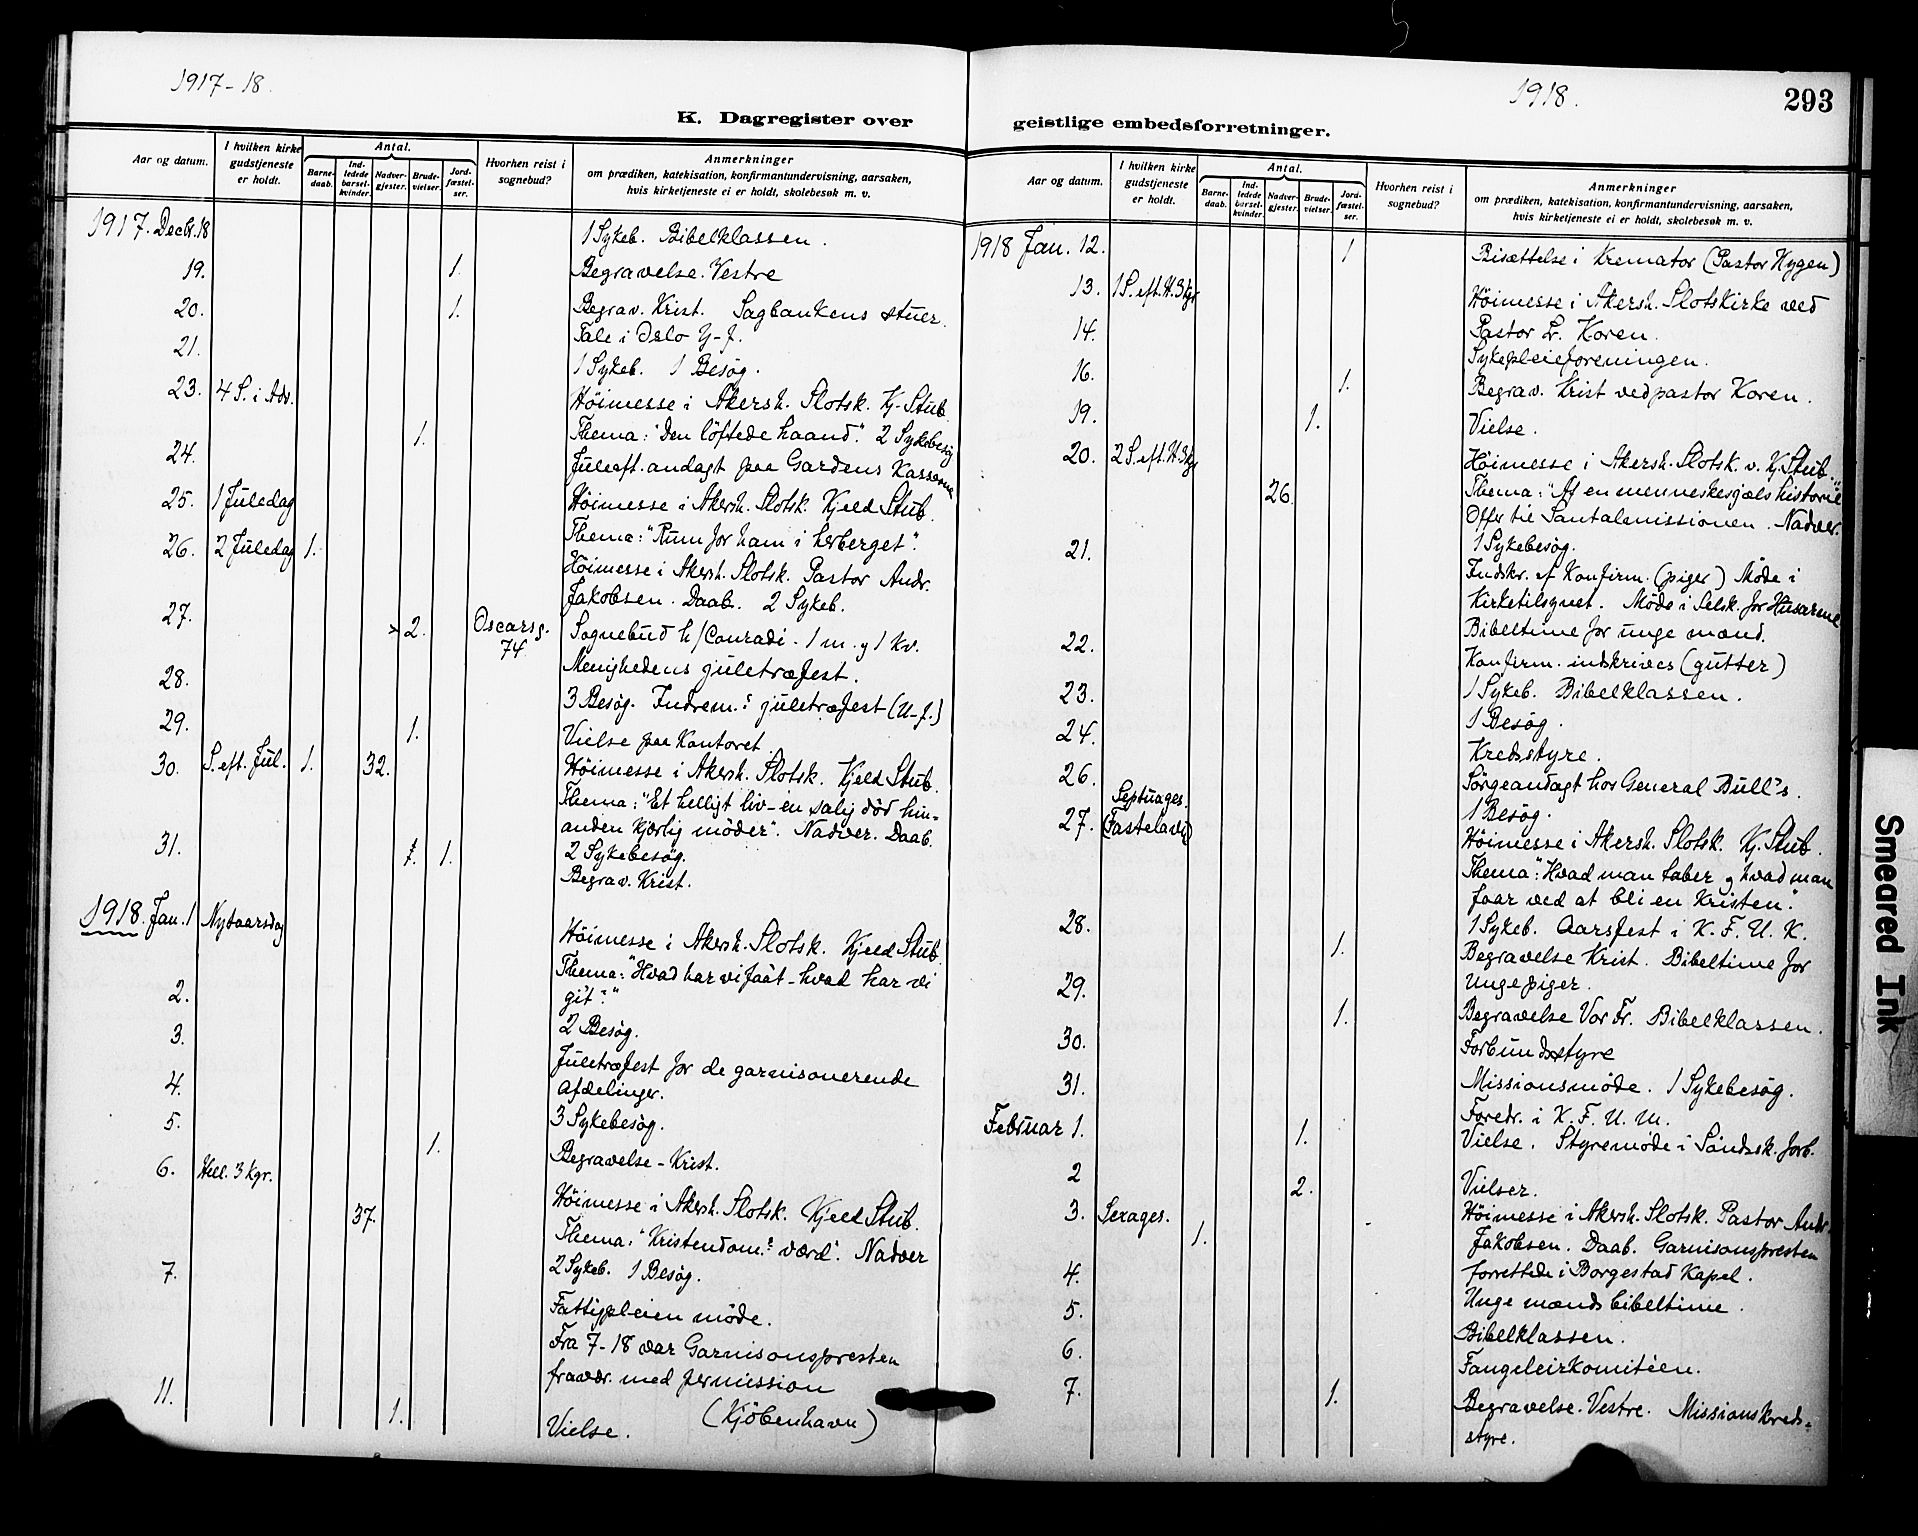 1917-18.
K. Dagregister over
Aar og datum.
I hvilken kirke gudstjeneste er holdt.
Antal.
Barne-daab.
Ind-ledede barsel-kvinder.
Nadver-gjester.
Brude-vielser.
Jord-fæstel-ser.
Hvorhen reist i sognebud?
Anmerkninger
om prædiken, katekisation, konfirmantundervisning, aarsaken,
hvis kirketjeneste ei er holdt, skolebesøk m. v.
1917. Decbr. 18 1 Sykeb. Bibelklassen.
19. 1. Begravelse. Vestre
20. 1. Begrav. Krist. Sagbankens stuer.
Tale i Oslo U-f.
21. 1 Sykeb. 1 Besøg.
23. 4 S. i Adv. Höimesse i Akersh. Slotsk. Kj. Stub
1. Thema: "Den löftede haand". 2 Sykebesög
24. Juleaft. andagt paa Gardens Kaserne
25. 1 Juledag Höimesse i Akersh. Slotsk. Kjeld Stub.
Thema: "Rum for ham i herberget".
26. 2 Juledag 1. Höimesse i Akersh. Slotsk. Pastor Andr.
Jakobsen. Daab. 2 Sykeb.
27. 2. Oscarsg. 74 Sognebud h/Conradi - 1 m. og 1 kv.
Menighedens juletræfest.
28. 3 Besøg. Indrem.s juletræfest (U-f.)
29. 1. Vielse paa Kontoret.
30. S. eft. Jul. 1. 32. Höimesse i Akersh. Slotsk. Kjeld Stub.
Thema: "Et helligt liv - en salig död hin-
anden kjærlig möder". Nadver. Daab.
2 Sykebesög.
31. 1. 1. Begrav. Krist.
1918. Jan. 1 Nytaarsdag Höimesse i Akersh. Slotsk. Kjeld Stub.
Thema: "Hvad har vi faat - hvad har vi
git?"
2. 2 Besøg.
3. Juletræfest for de garnisonerende
Afdelinger.
4. 3 Sykebesøg.
5. 1. Begravelse - Krist.
6. Hell. 3 kgr. 37. Höimesse i Akersh. Slotsk. Kjeld Stub.
Thema: "Kristendom.s værd". Nadver
2 Sykeb. 1 Besög.
7. Fattigpleien möde.
Fra 7-18 var Garnisonspresten
fravær. med permission
(Kjöbenhavn)
11. 1. Vielse.
1918.
293
geistlige embedsforretninger.
Aar og datum.
I hvilken kirke gudstjeneste er holdt.
Antal.
Barne-daab.
Ind-ledede barsel-kvinder.
Nadver-gjester.
Brude-vielser.
Jord-fæstel-ser.
Hvorhen reist i sognebud?
Anmerkninger
om prædiken, katekisation, konfirmantundervisning, aarsaken,
hvis kirketjeneste ei er holdt, skolebesøk m. v.
1918 Jan. 12. 1 Bisættelse i Kremator (Pastor Hygen)
13. 1 S. eft. H. 3 kgr Höimesse i Akersh. Slotskirke ved
Pastor Kr. Koren.
14. Sykepleieforeningen.
16. 1. Begrav. Krist ved pastor Koren.
19. 1. Vielse.
20. 2 S. eft. H. 3 kgr Höimesse i Akersh. Slotsk. v. Kj. Stub.
26. Thema: "Af en menneskesjæls historie"
Offer til Santalmissionen. Nadver.
1 Sykebesög.
21. Indskr. af Konfirm. (piger) Möde i
Kirketilsynet. Möde i Selsk. for Husarme
Bibeltime for unge mænd.
22. Konfirm. indskrives (gutter)
1 Sykeb. Bibelklassen.
23. 1 Besög.
24. Kredsstyre.
26. Sørgeandagt hos General Bull's.
1 Besög.
27. Septuages. (Fastelavn) Höimesse i Akersh. Slotsk. Kj. Stub.
Thema: "Hvad man taber og hvad man
faar ved at bli en Kristen".
1 Sykeb. Aarsfest i K. F. U. K.
28. 1. Begravelse Krist. Bibeltime for
Unge piger.
29. 1. Begravelse Vor Fr. Bibelklassen.
30. Forbundsstyre
31. Missionsmöde. 1 Sykebesøg.
Foredr. i K. F. U. M.
Februar 1. 1. Vielse. Styremøde i Söndsk. forb.
2 2. Vielser.
3. Sexages. Höimesse i Akersh. Slotsk. Pastor Andr.
1. Jakobsen. Daab. Garnisonspresten
forrettede i Borgestad Kapel.
4. Unge mænds bibeltime.
5. Bibelklassen.
6. Fangeleirkomitéen.
7. 1. Begravelse. Vestre. Missionskreds-
styre.
Smeared Ink